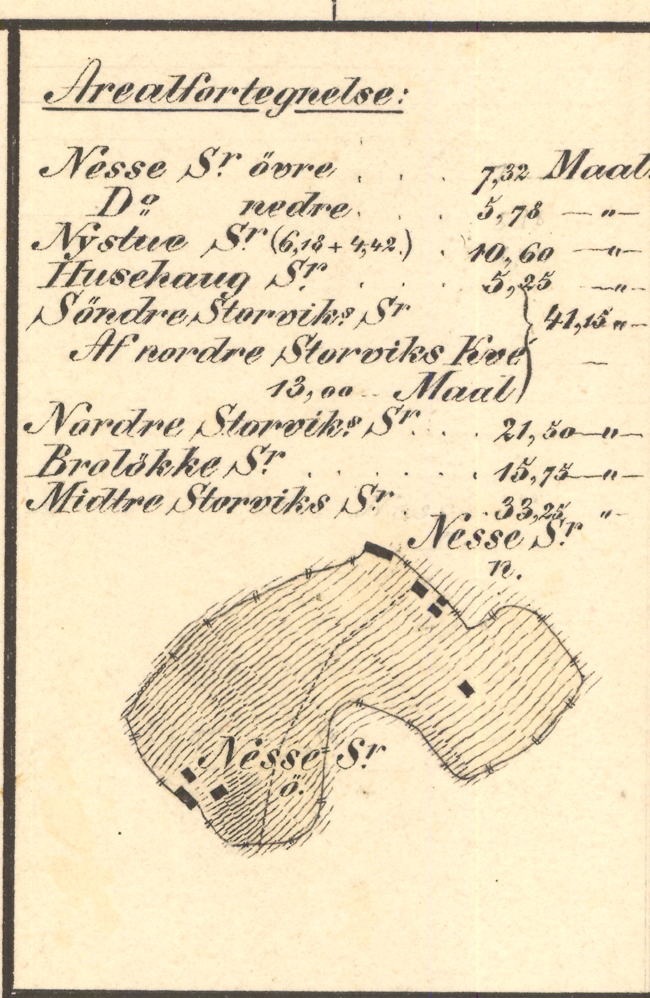 Arealfortegnelse:
Nesse Sr övre . . . 7,32 Maal.
Do nedre . . . 5,78 — " —
Nystue Sr (6,18 + 4,42.) . 10,60 — " —
Husehaug Sr . . . 5,25 — " —
Söndre Storviks Sr 41,15 " —
Af nordre Storviks Kve —
13,00 Maal
Nordre Storviks Sr . . . 21,50 — " —
Brolökke Sr . . . . . . 15,75 — " —
Midtre Storviks Sr . . 33,25 " —
Nesse Sr
n.
Nesse Sr
ö.